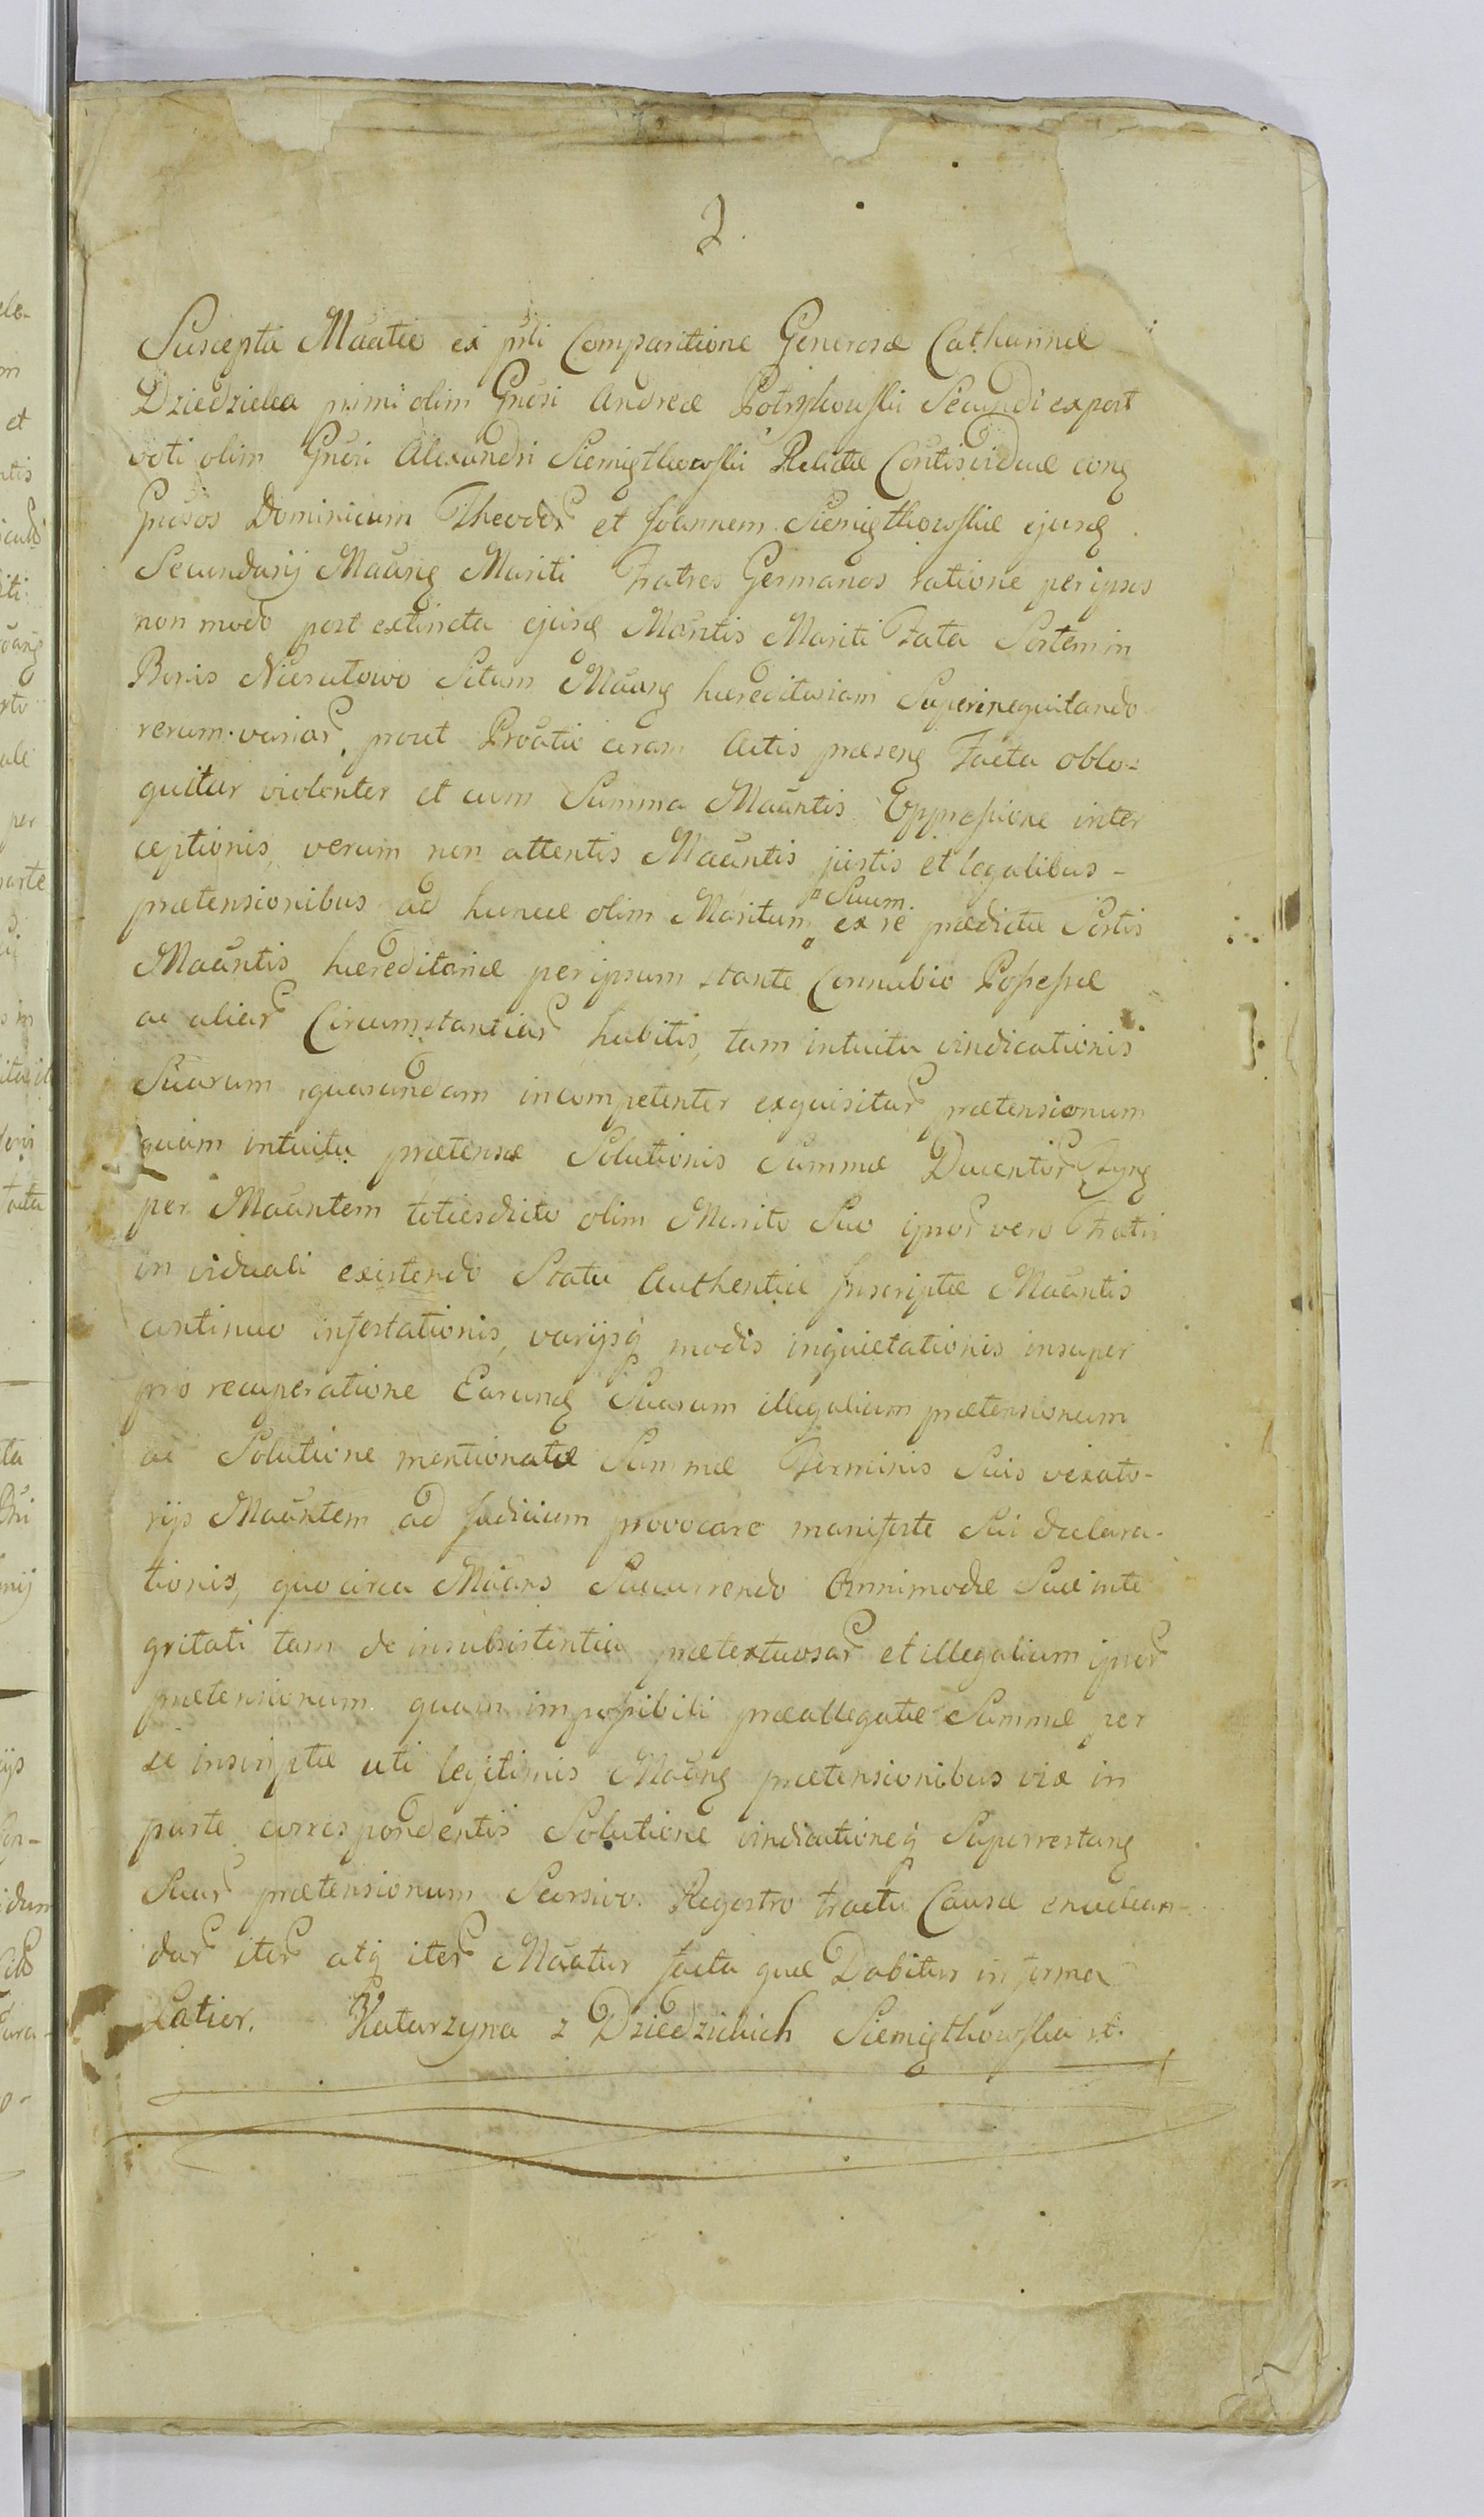 2.
Suscepta Maatio ex pnti Comparitione Generosæ Catharinæ
Dziedzicka primi olim Gnosi Andreæ Potrykowski Secundi expost
voti olim Gnosi Alexandri Siemigthowski Relictæ Contisviduæ cong
Gnosos Dominicum Theodor et Joannem Siemigthowskie ejusq
Secundarij Maang Mariti Fratres Germanos ratione per ipsos
non modo post extincta ejusq Maantis Mariti Fata Sortem in
Bonis Nieratowo Sitam Maang hæreditariam Superinequitando
rerum variar prout Proatio coram Actis præseng Facta oblo-
quitur violenter et cum Summa Maantis Oppressione inter
ceptionis, verum non attentis Maantis justis et legalibus -
prætensionibus ad huncce olim Maritum Suum. ex re prædictæ Sortis
Maantis hæreditariæ per ipsum stante Connubio Possessæ
ac aliar Circumstantiar habitis, tam intuitu vindicationis
Suarum quarundam incompetenter exquisitar prætensionum
quam intuitu prætensæ Solutionis Summæ Ducentor Tyng
per Maantem totiesdicto olim Marito Suo ipsor vero Fratri
in viduali existendo Statu Authentice Inscriptæ Maantis
continuo infestationis, varijsq modis inquietationis insuper
pro recuperatione Earundq Suarum illegalium prætensionum
ac Solutione mentionatæ Summæ Terminis Suis vexato-
rijs Maantem ad Judicium provocare manifeste Sui declara-
tionis, quocirca Maans Succurrendo Omnimodæ Suæ inte
gritati tam de insubsistentia prætextuosar et illegalium ipsor
prætensionum quam impossibili præallegatæ Summæ per
se inscriptæ uti legitimis Maang prætensionibus vix in
parte correspondentis Solutione vindicationeq Superrestang
Suar prætensionum Scorsivo. Regestro tractu Causæ enuclean-
dar iter atq iter Maatur facta quæ Dabitur in forma
Latior. Katarzyna z Dziedzickich Siemigthowska st.